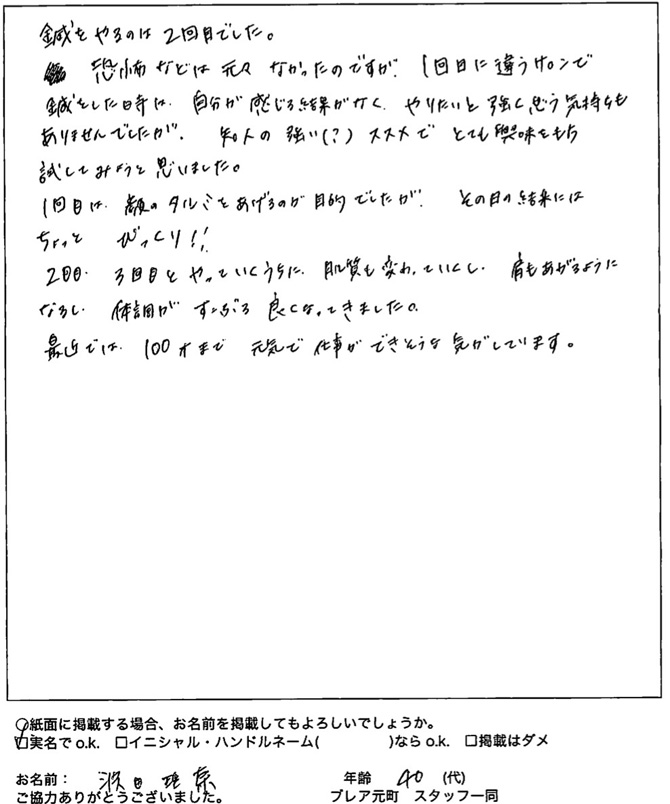 鍼をやるのは2回目でした。
恐怖などは元々なかったのですが、1回目に違うサロンで
鍼をした時は、自分が感じる結果がなく、やりたいと強く思う気持ちも
ありませんでしたが、知人の強い(?)ススメでとても興味をもち
試してみようと思いました。
1回目は、顔のタルミをあげるのが目的でしたが、その日の結果には
ちょっと びっくり!!
2回目、3回目とやっていくうちに、肌質も変わっていくし、肩もあがるように
なるし、体調がすこぶる良くなってきました。
最近では、100才まで元気で仕事ができそうな気がしています。
○紙面に掲載する場合、お名前を掲載してもよろしいでしょうか。
□実名でo.k. □イニシャル・ハンドルネーム( )ならo.k. □掲載はダメ
お名前: 年齢 40 (代)
ご協力ありがとうございました。 ブレア元町 スタッフ一同